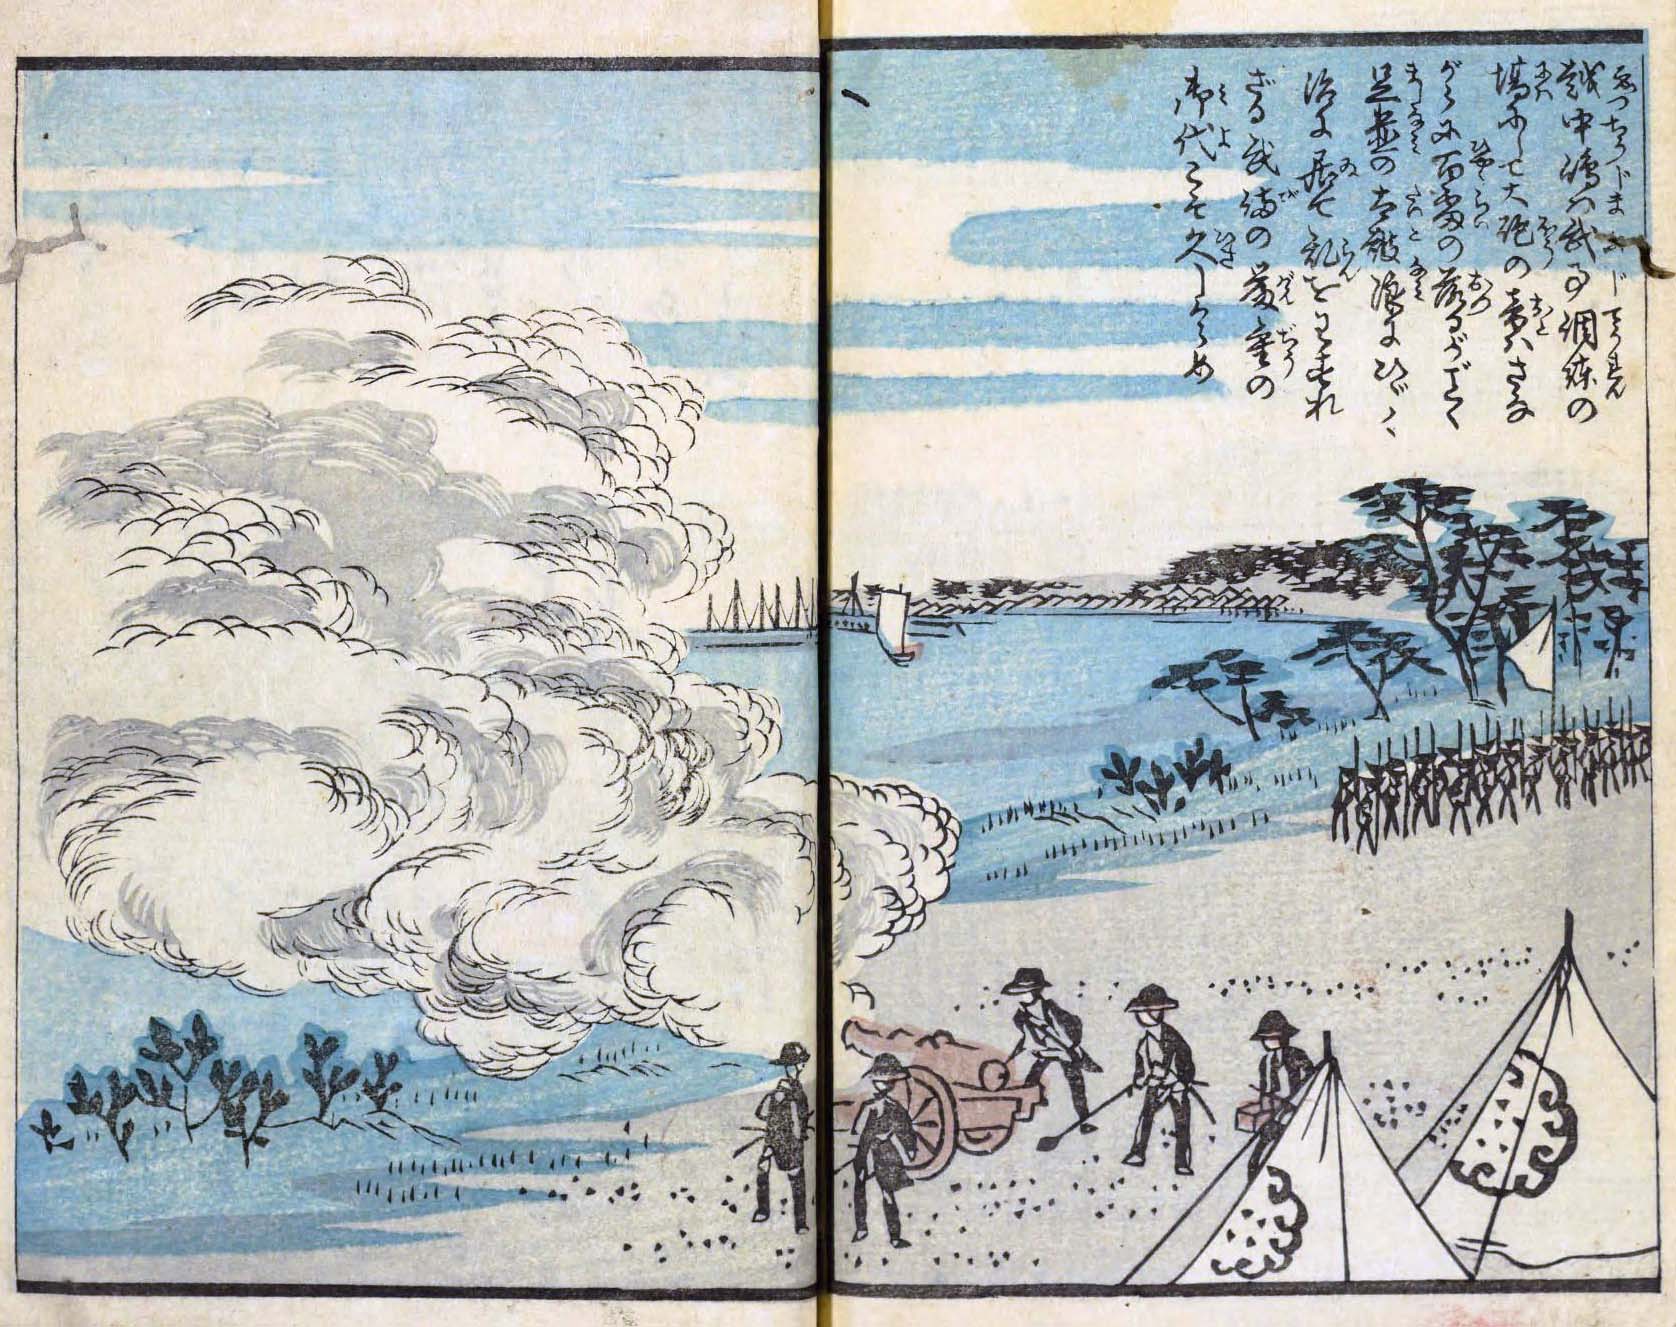 越中嶋ハ武事調練の
場にして大砲の音ハさな
がらに百雷の落るがごとく
足並の太鼓浪にひゞく
治に居て乱をわすれ
ざる武備の厳重の
御代こそ久しからめ